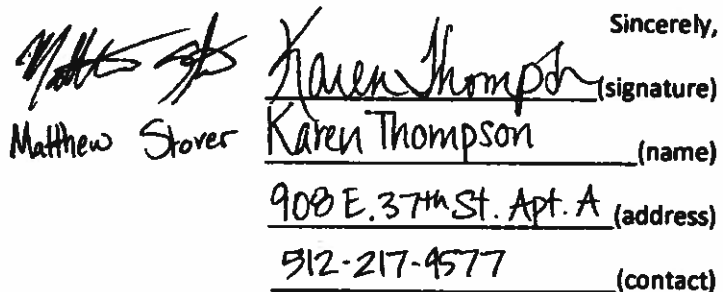 Sincerely,
Karen Thompson (signature)
Matthew Stover Karen Thompson (name)
908 E. 37th St. Apt. A (address)
512-217-9577 (contact)